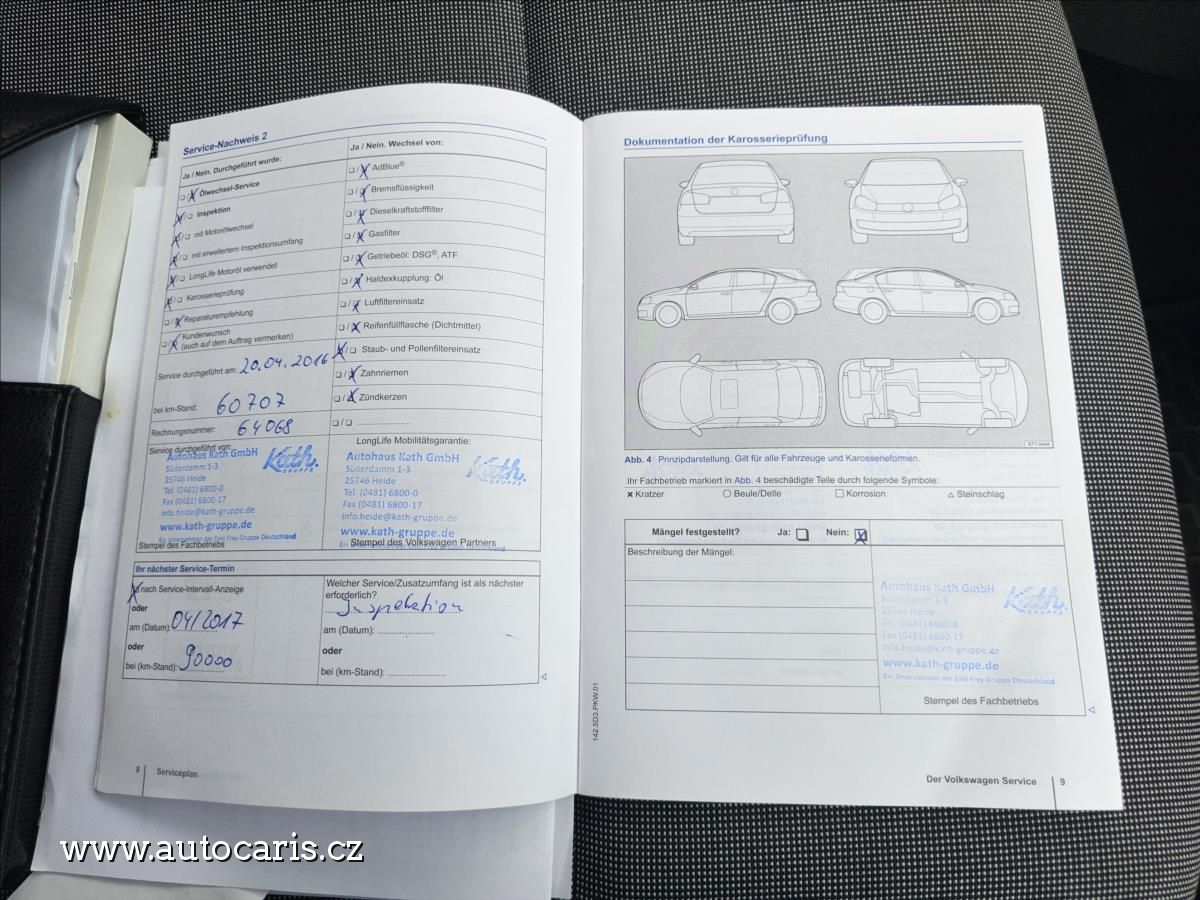 Service-Nachweis 2
Ja / Nein. Durchgeführt wurde:
Ölwechsel-Service
Inspektion
mit Motorölwechsel
mit erweitertem Inspektionsumfang
LongLife Motoröl verwendet
Karosserieprüfung
Reparaturempfehlung
Kundenwunsch
(auch auf dem Auftrag vermerken)
Service durchgeführt am: 20.04.2016
bei km-Stand: 60707
Rechnungsnummer: 64068
Service durchgeführt von:
Autohaus Kath GmbH
Kath.
GRUPPE
Süderdamm 1-3
25746 Heide
Tel. (0481) 6800-0
Fax (0481) 6800-17
info.heide@kath-gruppe.de
www.kath-gruppe.de
Ein Unternehmen der Emil Frey Gruppe Deutschland
Stempel des Fachbetriebs
Ja / Nein. Wechsel von:
AdBlue®
Bremsflüssigkeit
Dieselkraftstofffilter
Gasfilter
Getriebeöl: DSG®, ATF
Haldexkupplung: Öl
Luftfiltereinsatz
Reifenfüllflasche (Dichtmittel)
Staub- und Pollenfiltereinsatz
Zahnriemen
Zündkerzen
LongLife Mobilitätsgarantie:
Autohaus Kath GmbH
Kath.
GRUPPE
Süderdamm 1-3
25746 Heide
Tel. (0481) 6800-0
Fax (0481) 6800-17
info.heide@kath-gruppe.de
www.kath-gruppe.de
Stempel des Volkswagen Partners
Ihr nächster Service-Termin
nach Service-Intervall-Anzeige
oder
am (Datum): 04/2017
oder
bei (km-Stand): 90000
Welcher Service/Zusatzumfang ist als nächster
erforderlich?
Inspektion
am (Datum):
oder
bei (km-Stand):
8 Serviceplan
Dokumentation der Karosserieprüfung
B7T-0449
Abb. 4 Prinzipdarstellung. Gilt für alle Fahrzeuge und Karosserieformen.
Ihr Fachbetrieb markiert in Abb. 4 beschädigte Teile durch folgende Symbole:
Kratzer Beule/Delle Korrosion Steinschlag
Mängel festgestellt? Ja: Nein:
Beschreibung der Mängel:
Autohaus Kath GmbH
Kath.
GRUPPE
Süderdamm 1-3
25746 Heide
Tel. (0481) 6800-0
Fax (0481) 6800-17
info.heide@kath-gruppe.de
www.kath-gruppe.de
Ein Unternehmen der Emil Frey Gruppe Deutschland
Stempel des Fachbetriebs
142.5D3.PKW.01
Der Volkswagen Service 9
www.autocaris.cz